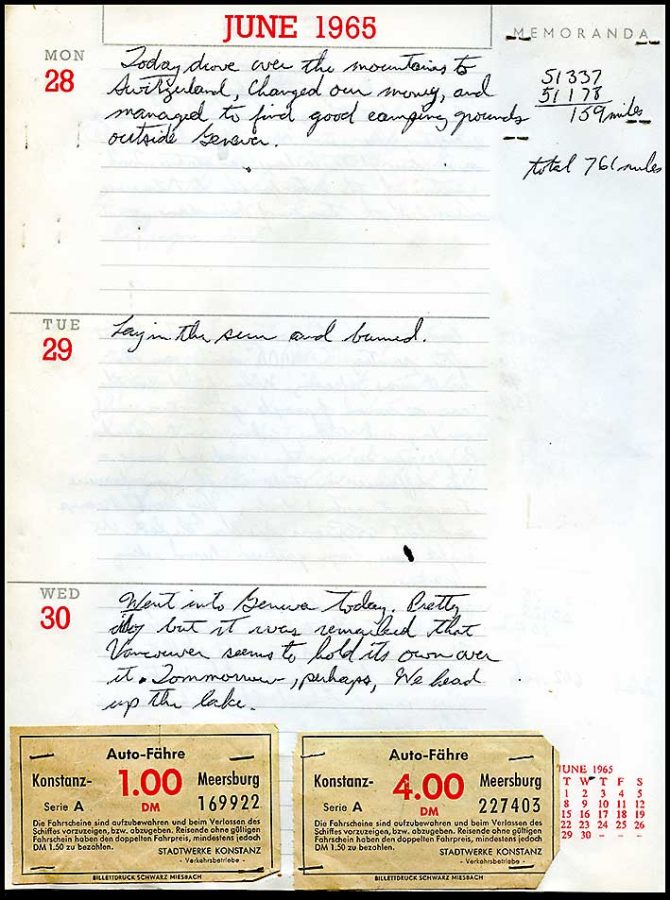 JUNE 1965
MEMORANDA
MON
28
Today drove over the mountains to
Switzerland, Changed our money, and
managed to find good camping grounds
outside Geneva.
51337
51178
159 miles
total 761 miles
TUE
29
Lay in the sun and burned.
WED
30
Went into Geneva today. Pretty
but it was remarked that
Vancouver seems to hold its own over
it. Tommorrow, perhaps, We head
up the lake.
Auto-Fähre
Konstanz- 1.00 Meersburg
Serie A DM 169922
Die Fahrscheine sind aufzubewahren und beim Verlassen des
Schiffes vorzuzeigen, bzw. abzugeben. Reisende ohne gültigen
Fahrschein haben den doppelten Fahrpreis, mindestens jedoch
DM 1.50 zu bezahlen.
STADTWERKE KONSTANZ
- Verkehrsbetriebe -
BILLETTDRUCK SCHWARZ MIESBACH
Auto-Fähre
Konstanz- 4.00 Meersburg
Serie A DM 227403
Die Fahrscheine sind aufzubewahren und beim Verlassen des
Schiffes vorzuzeigen, bzw. abzugeben. Reisende ohne gültigen
Fahrschein haben den doppelten Fahrpreis, mindestens jedoch
DM 1.50 zu bezahlen.
STADTWERKE KONSTANZ
- Verkehrsbetriebe -
BILLETTDRUCK SCHWARZ MIESBACH
JUNE 1965
T W T F S
1 2 3 4 5
8 9 10 11 12
15 16 17 18 19
22 23 24 25 26
29 30 - - -